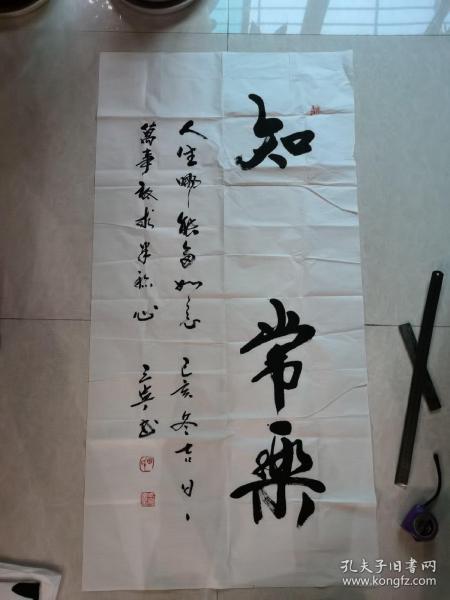 知常樂
人生哪能多如意 己亥冬吉日
萬事祗求半称心
孔夫子旧书网
www.kongfz.com